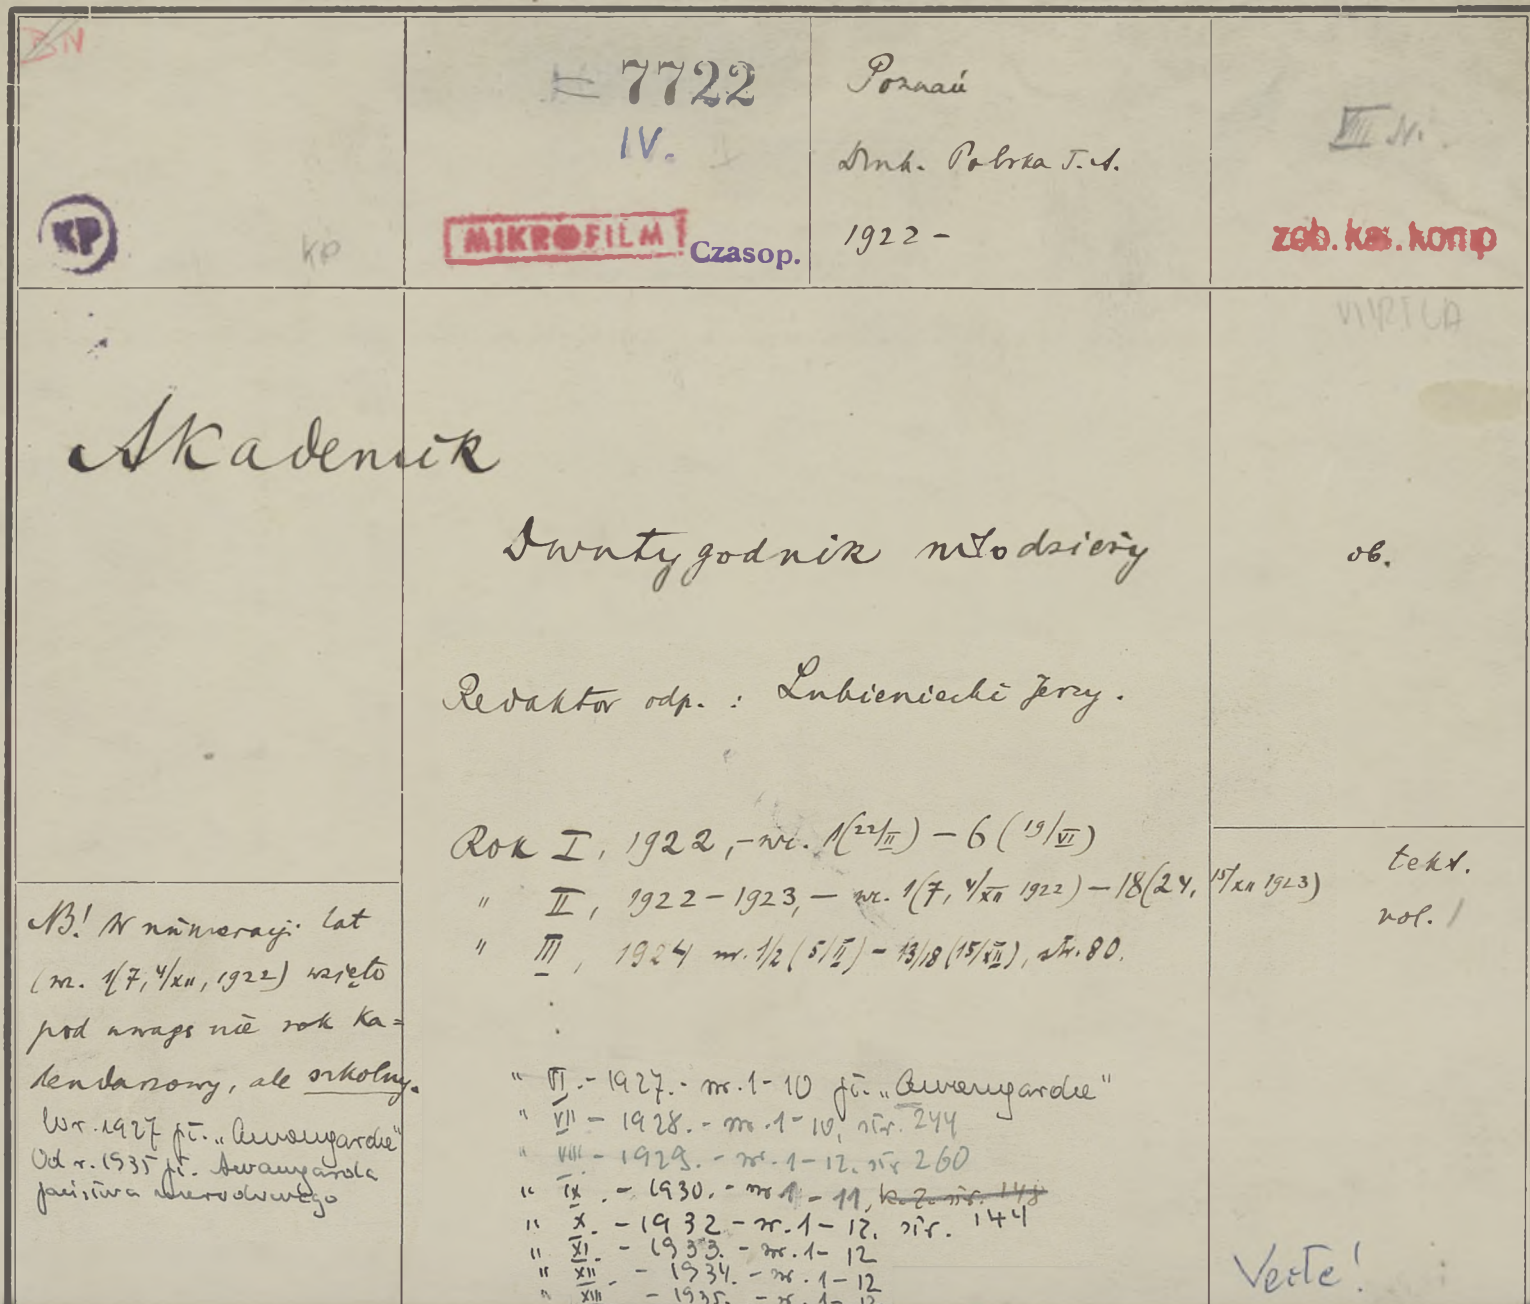 BN
7722
IV.
KP
KP
MIKROFILM
Czasop.
Poznań
Druk. Polska T.A.
1922 -
VIII N.
zob. kat. komp
VIRTUA
Akademik
Dwutygodnik młodzieży
ob.
Redaktor odp. : Lubieniecki Jerzy.
Rok I, 1922, - nr. 1(22/II) - 6 (19/VI)
" II, 1922-1923, - nr. 1(7, 4/XII 1922) - 18(24, 15/XII 1923)
" III, 1924 nr. 1/2 (5/II) - 13/18 (15/XII), str. 80.
.
.
" VI. - 1927. - nr. 1-10 pt. „Awangarda"
" VII - 1928. - nr. 1-10, str. 244
" VIII - 1929. - nr. 1-12. str 260
" IX. - 1930. - nr 1 - 11, k. 2. str. 148
" X. - 1932 - nr. 1-12. str. 144
" XI. - 1933. - nr. 1-12
" XII. - 1934. - nr. 1-12
" XIII - 1935. - nr. 1-12
tekt.
vol. 1
NB! W numeracji lat
(nr. 1(7, 4/XII, 1922) wzięto
pod uwagę nie rok ka=
lendarzowy, ale szkolny.
W r. 1927 pt. „Awangarda"
Od r. 1935 pt. Awangarda
państwa narodowego
Verte!